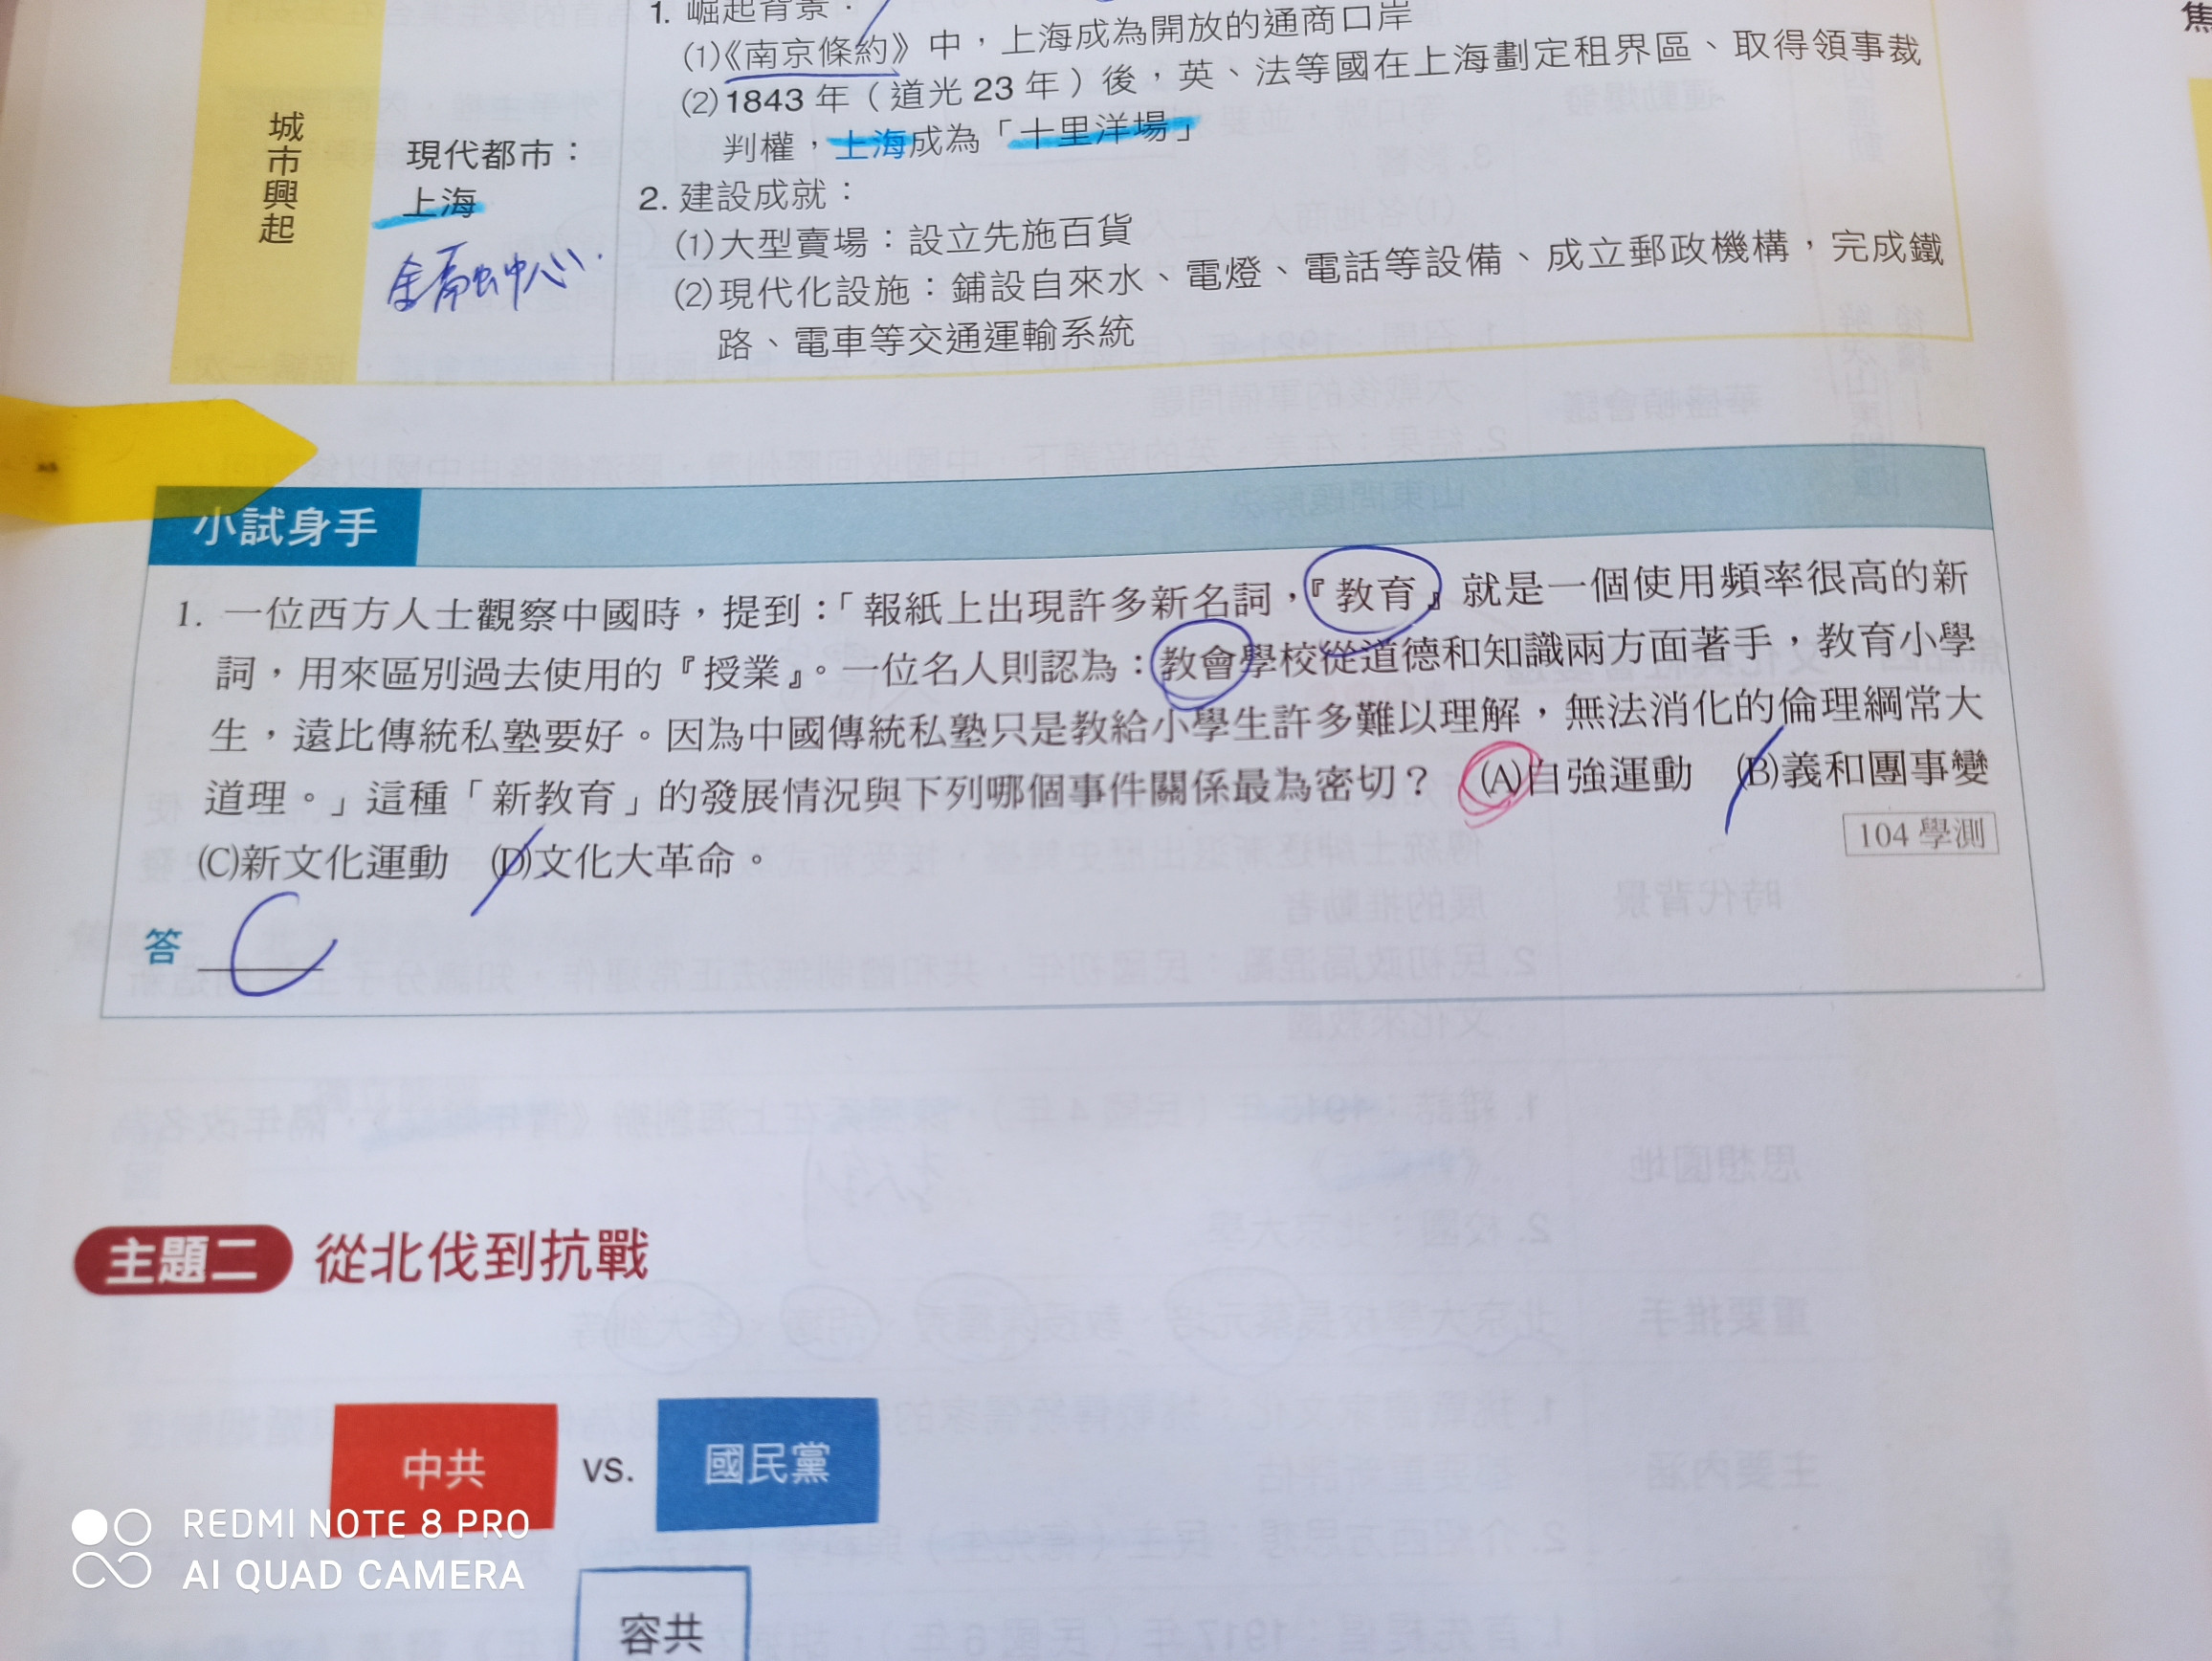 1. 崛起背景：
(1)《南京條約》中，上海成為開放的通商口岸
(2) 1843 年（道光 23 年）後，英、法等國在上海劃定租界區、取得領事裁
判權，上海成為「十里洋場」
城市興起
現代都市：
上海
金融中心
2. 建設成就：
(1)大型賣場：設立先施百貨
(2)現代化設施：鋪設自來水、電燈、電話等設備、成立郵政機構，完成鐵
路、電車等交通運輸系統
小試身手
1. 一位西方人士觀察中國時，提到：「報紙上出現許多新名詞，『教育』就是一個使用頻率很高的新
詞，用來區別過去使用的『授業』。一位名人則認為：教會學校從道德和知識兩方面著手，教育小學
生，遠比傳統私塾要好。因為中國傳統私塾只是教給小學生許多難以理解，無法消化的倫理綱常大
道理。」這種「新教育」的發展情況與下列哪個事件關係最為密切？ (A)自強運動 (B)義和團事變
(C)新文化運動 (D)文化大革命。
104 學測
答 C
主題二 從北伐到抗戰
中共 vs. 國民黨
容共
REDMI NOTE 8 PRO
AI QUAD CAMERA